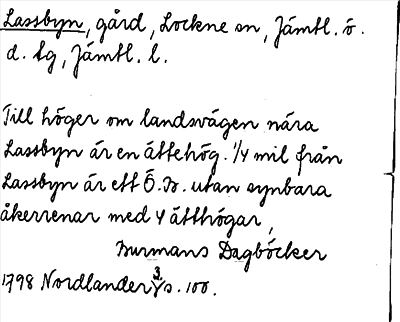 Lassbyn, gård, Lockne sn, Jämtl. ö.
d. tg, Jämtl. l.
Till höger om landsvägen nära
Lassbyn är en ättehög. 1/4 mil från
Lassbyn är ett Ö.B. utan synbara
åkerrenar med 4 ätthögar,
Burmans Dagböcker
1798 Nordlander 3 s. 100.